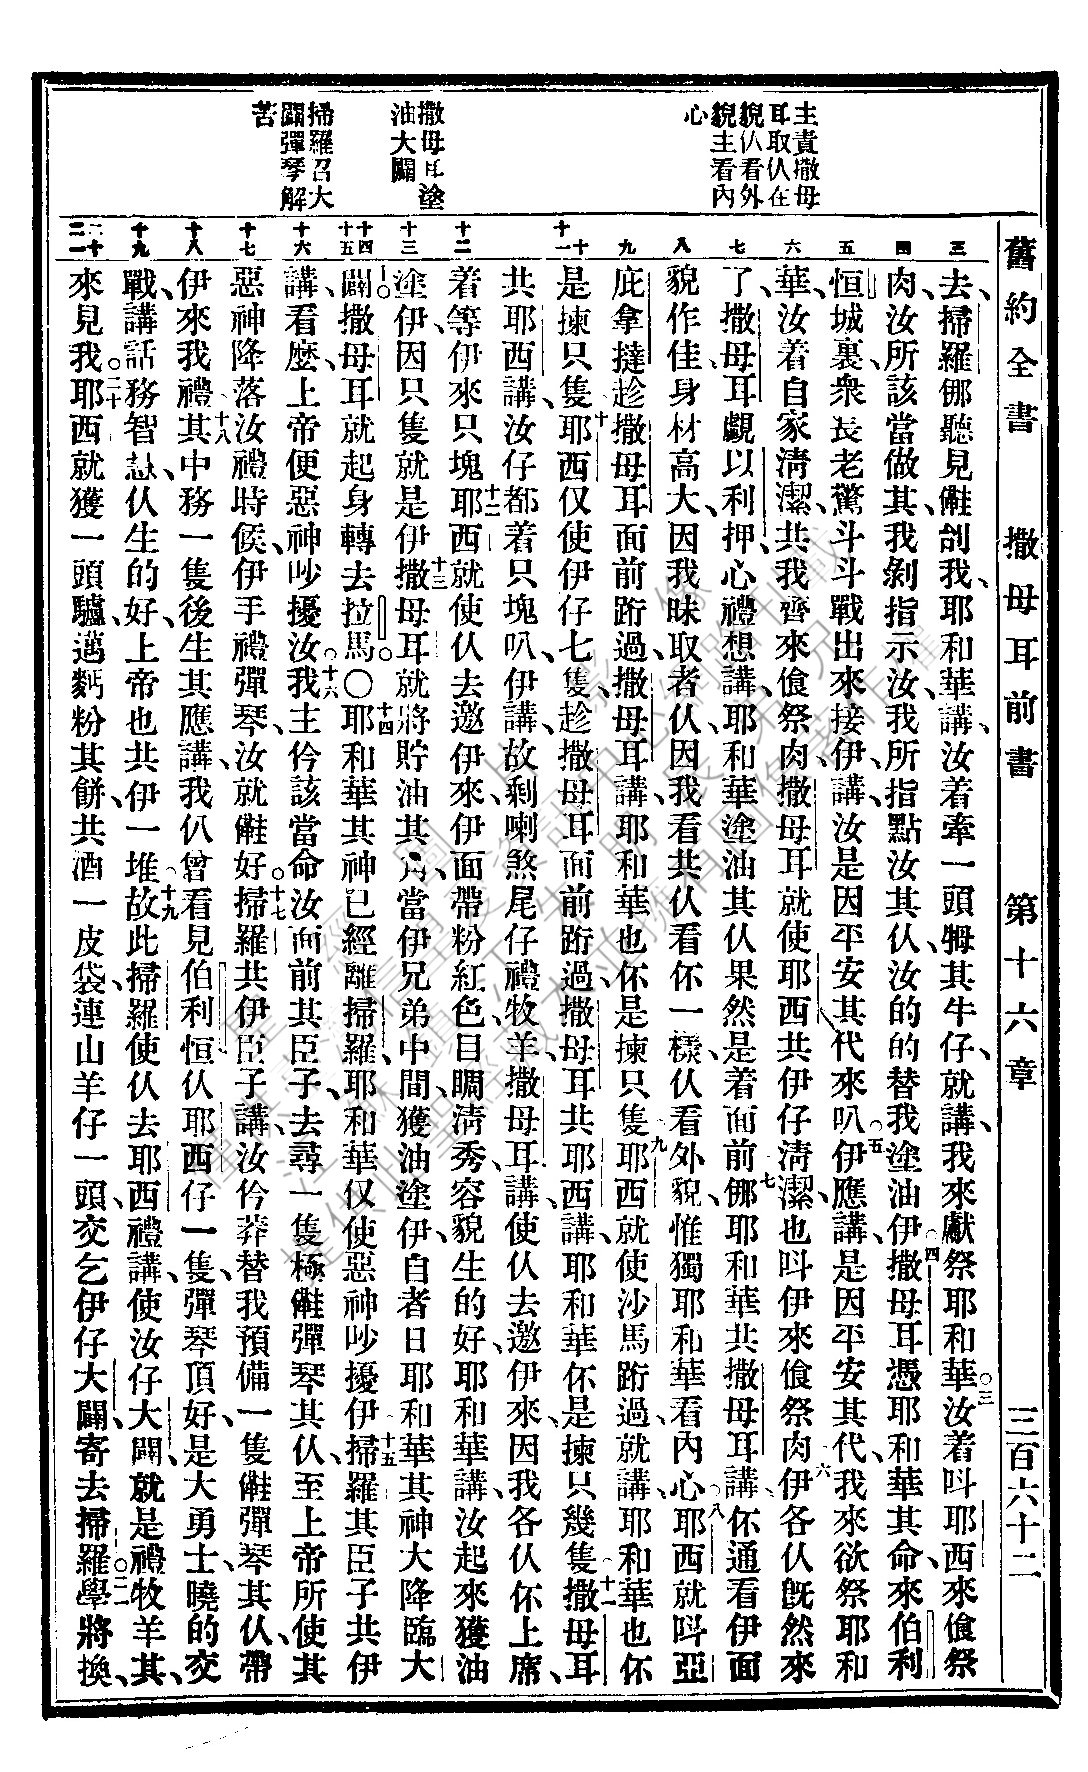 舊約全書　撒母耳前書　第十六章　三百六十二
主責撒母
耳取仈在
貌仈看外
貌主看內
心
撒母耳塗
油大闢
掃羅召大
闢彈琴解
苦
三
四
五
六
七
八
九
十
十一
十二
十三
十四
十五
十六
十七
十八
十九
二十
二一
去、掃羅㑚聽見、㑚刣我、耶和華講、汝着牽一頭牳其牛仔、就講、我來獻祭耶和華、○三汝着呌耶西來飧祭
肉、汝所該當做其、我剝指示汝、我所指點汝其仈、汝的的替我塗油伊、○四撒母耳憑耶和華其命、來伯利
恒城裏、衆長老驚斗斗戰、出來接伊、講、汝是因平安其代來叭、○五伊應講、是因平安其代、我來欲祭耶和
華、汝着自家淸潔、共我齊來飧祭肉、撒母耳就使耶西共伊仔淸潔、也呌伊來飧祭肉、○六伊各仈旣然來
了、撒母耳覷以利押、心禮想講、耶和華塗油其仈、果然是着面前、○七㑚耶和華共撒母耳講、伓通看伊面
貌作佳、身材高大、因我昧取者仈、因我看共仈看伓一樣、仈看外貌、惟獨耶和華看內心、○八耶西就呌亞
庇拿撻趁撒母耳面前跨過、撒母耳講、耶和華也伓是揀只隻、○九耶西就使沙馬跨過、就講、耶和華也伓
是揀只隻、○十耶西仅使伊仔七隻、趁撒母耳面前跨過、撒母耳共耶西講、耶和華伓是揀只幾隻、○十一撒母耳
共耶西講、汝仔都着只塊叭、伊講、故剩喇煞尾仔、禮牧羊、撒母耳講、使仈去邀伊來、因我各仈伓上席、
着等伊來只塊、○十二耶西就使仈去邀伊來、伊面帶粉紅色、目睭淸秀、容貌生的好、耶和華講、汝起來獲油
塗伊、因只隻就是伊、○十三撒母耳就將貯油其角、當伊兄弟中間、獲油塗伊、自者日耶和華其神大降臨大
闢、撒母耳就起身轉去拉馬、○○十四耶和華其神已經離掃羅、耶和華仅使惡神吵擾伊、○十五掃羅其臣子共伊
講、看麽、上帝使惡神吵擾汝、○十六我主仱該當命汝面前其臣子、去尋一隻極㑚彈琴其仈、至上帝所使其
惡神降落汝禮時候、伊手禮彈琴、汝就㑚好、○十七掃羅共伊臣子講、汝仱莽替我預備一隻㑚彈琴其仈、帶
伊來我禮、○十八其中務一隻後生其應講、我仈曾看見伯利恒仈耶西仔一隻、彈琴頂好、是大勇士、曉的交
戰、講話務智慧、仈生的好、上帝也共伊一堆、○十九故此掃羅使仈去耶西禮講、使汝仔大闢、就是禮牧羊其、
來見我、○二十耶西就獲一頭驢、邁麫粉其餅、共酒一皮袋、連山羊仔一頭、交乞伊仔大闢、寄去掃羅、○二一學將換、